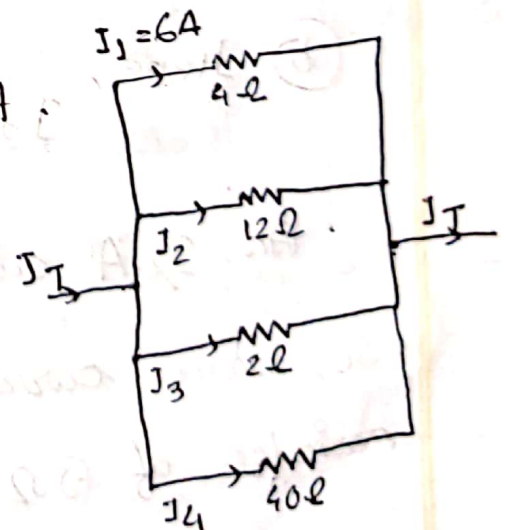 I₁ = 6A
4Ω
I₂
12Ω
I_T
I_T
I₃
2Ω
I₄
40Ω